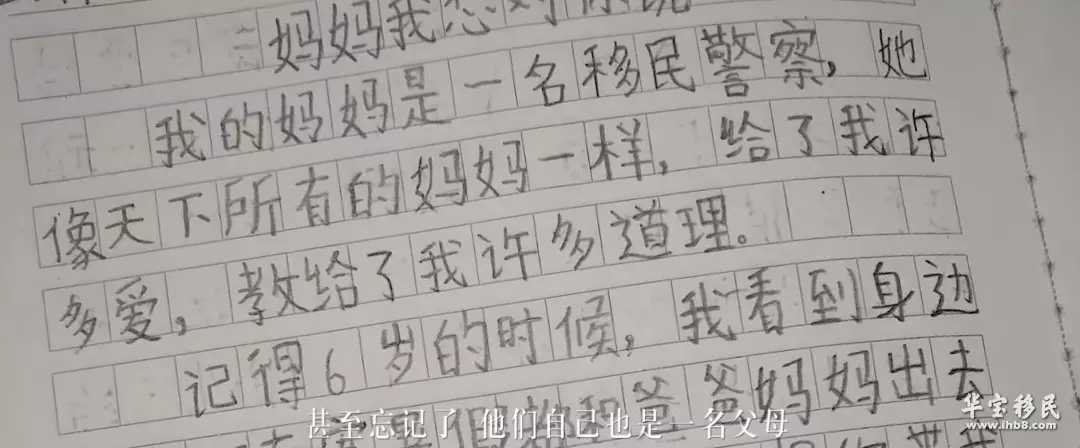 妈妈我想对你说
我的妈妈是一名移民警察，她
像天下所有的妈妈一样，给了我许
多爱，教给了我许多道理。
记得6岁的时候，我看到身边
爸爸妈妈出去
甚至忘记了 他们自己也是一名父母
华宝移民
www.ihb8.com